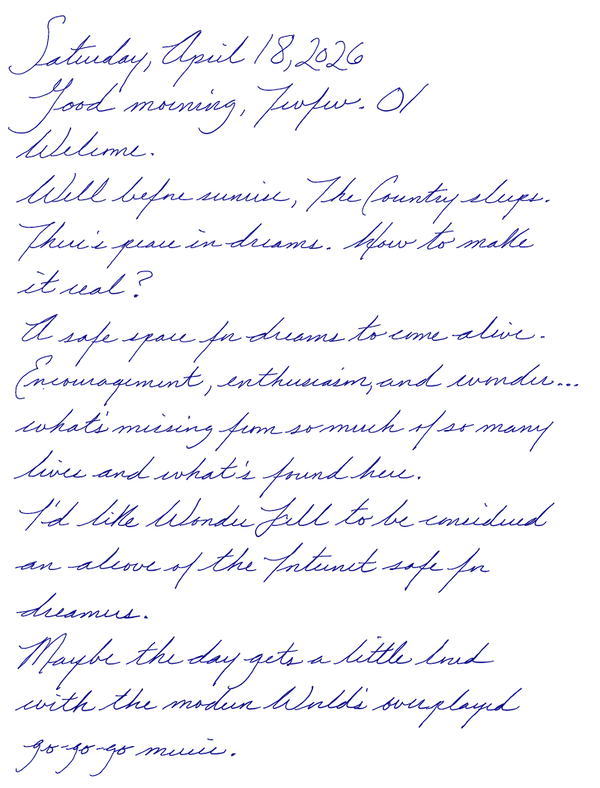 Saturday, April 18, 2026
Good morning, Twfw. 01
Welcome.
Well before sunrise, The Country sleeps.
There's peace in dreams. How to make
it real?
A safe space for dreams to come alive.
Encouragement, enthusiasm, and wonder...
what's missing from so much of so many
lives and what's found here.
I'd like Wonder Fell to be considered
an alcove of the Internet safe for
dreamers.
Maybe the day gets a little loud
with the modern World's overplayed
go-go-go music.